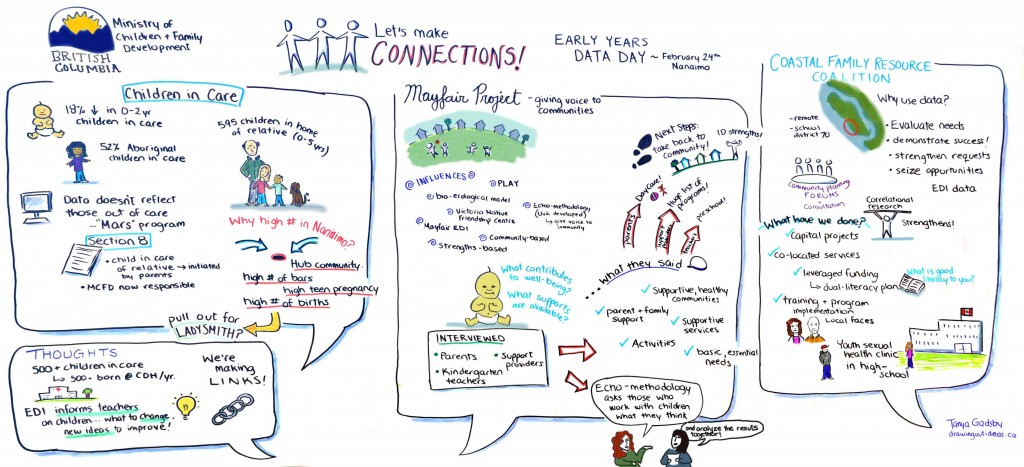 BRITISH
COLUMBIA
Ministry of
Children + Family
Development
Let's make
CONNECTIONS!
EARLY YEARS
DATA DAY ~ February 24TH
Nanaimo
Children in Care
18% ↓ in 0-2yr
children in care
52% Aboriginal
children in care
Data doesn't reflect
those out of care
..."Mars" program
Section 8
• child in care
of relative → initiated
by parents
• MCFD now responsible
595 children in home
of relative (0-5yrs)
Why high # in Nanaimo?
Hub community
high # of bars
high teen pregnancy
high # of births
pull out for
LADYSMITH?
THOUGHTS
500+ children in care
↳ 500+ born @ CDH/yr.
EDI informs teachers
on children... what to change,
new ideas to improve!
We're
making
LINKS!
Mayfair Project - giving voice to
communities
INFLUENCES
bio-ecological model
Victoria Native
friendship centre
Mayfair EDI
Community-based
Strengths-based
PLAY
Echo-methodology
(UVic developed)
↳ give voice to
community
Next Steps:
take back to
community!
ID strengths!
Daycare!
Huge list of
programs!
preschool!
parents
support
providers
teachers
What they said
What contributes
to well-being?
What supports
are available?
INTERVIEWED
• Parents
• Support
providers
• Kindergarten
teachers
✓ Supportive, healthy
communities
✓ parent + family
support
✓ Supportive
services
✓ Activities
✓ basic, essential
needs
Echo-methodology
asks those who
work with children
what they think
and analyze the results
together!
COASTAL FAMILY RESOURCE
COALITION
- remote
- school
district 70
Why use data?
• Evaluate needs
• demonstrate success!
• strengthen requests
• seize opportunities
EDI data
Community planning
FORUMS
+
Consultation
Correlational
research
Strengthens!
What have we done?
✓ Capital projects
✓ co-located services
✓ leveraged funding
↳ dual-literacy plan
What is good
literacy to you?
✓ training + program
implementation
Local faces
Youth sexual
health clinic
in high-
school
Tanya Gadsby
drawingoutideas.ca